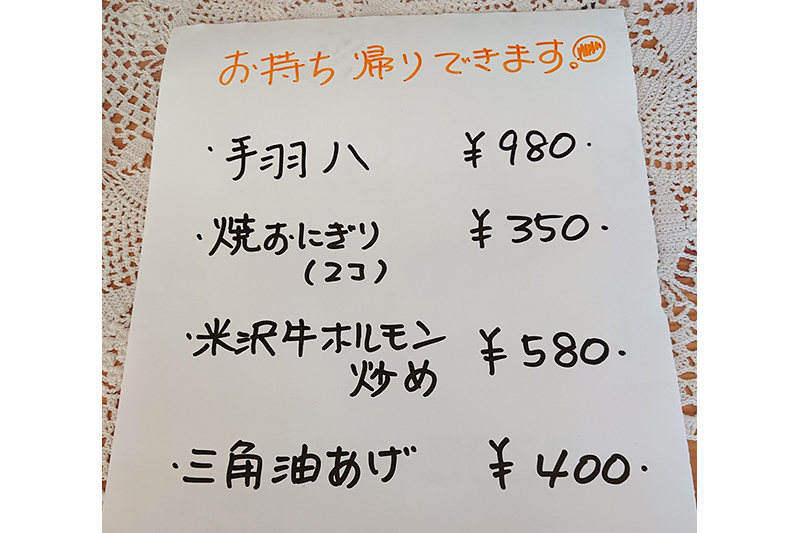 お持ち帰りできます。
・手羽八 ¥980.
・焼おにぎり ¥350.
(2コ)
・米沢牛ホルモン ¥580.
炒め
・三角油あげ ¥400.